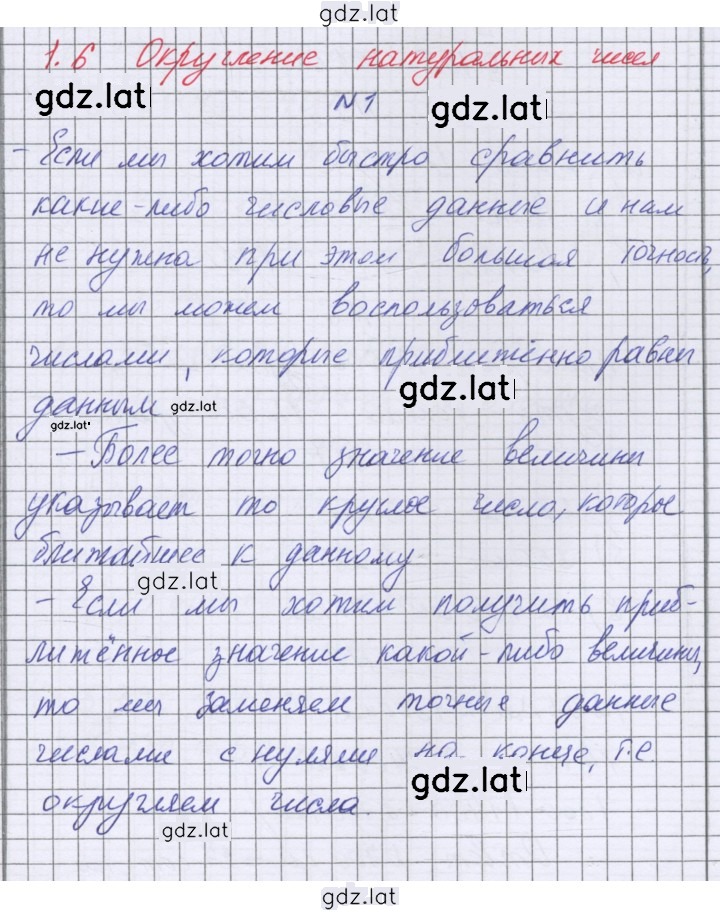 gdz.lat
1.6 Округление натуральных чисел
gdz.lat
№1
gdz.lat
- Если мы хотим быстро сравнить
какие-либо числовые данные и нам
не нужна при этом большая точность,
то мы можем воспользоваться
числами, которые приближённо равны
gdz.lat
данным
gdz.lat
gdz.lat
- Более точно значение величины
указывает то круглое число, которое
ближайшее к данному.
gdz.lat
- Если мы хотим получить приб-
лижённое значение какой-либо величины,
то мы заменяем точные данные
числами с нулями на конце, т.е
gdz.lat
округляем числа.
gdz.lat
gdz.lat